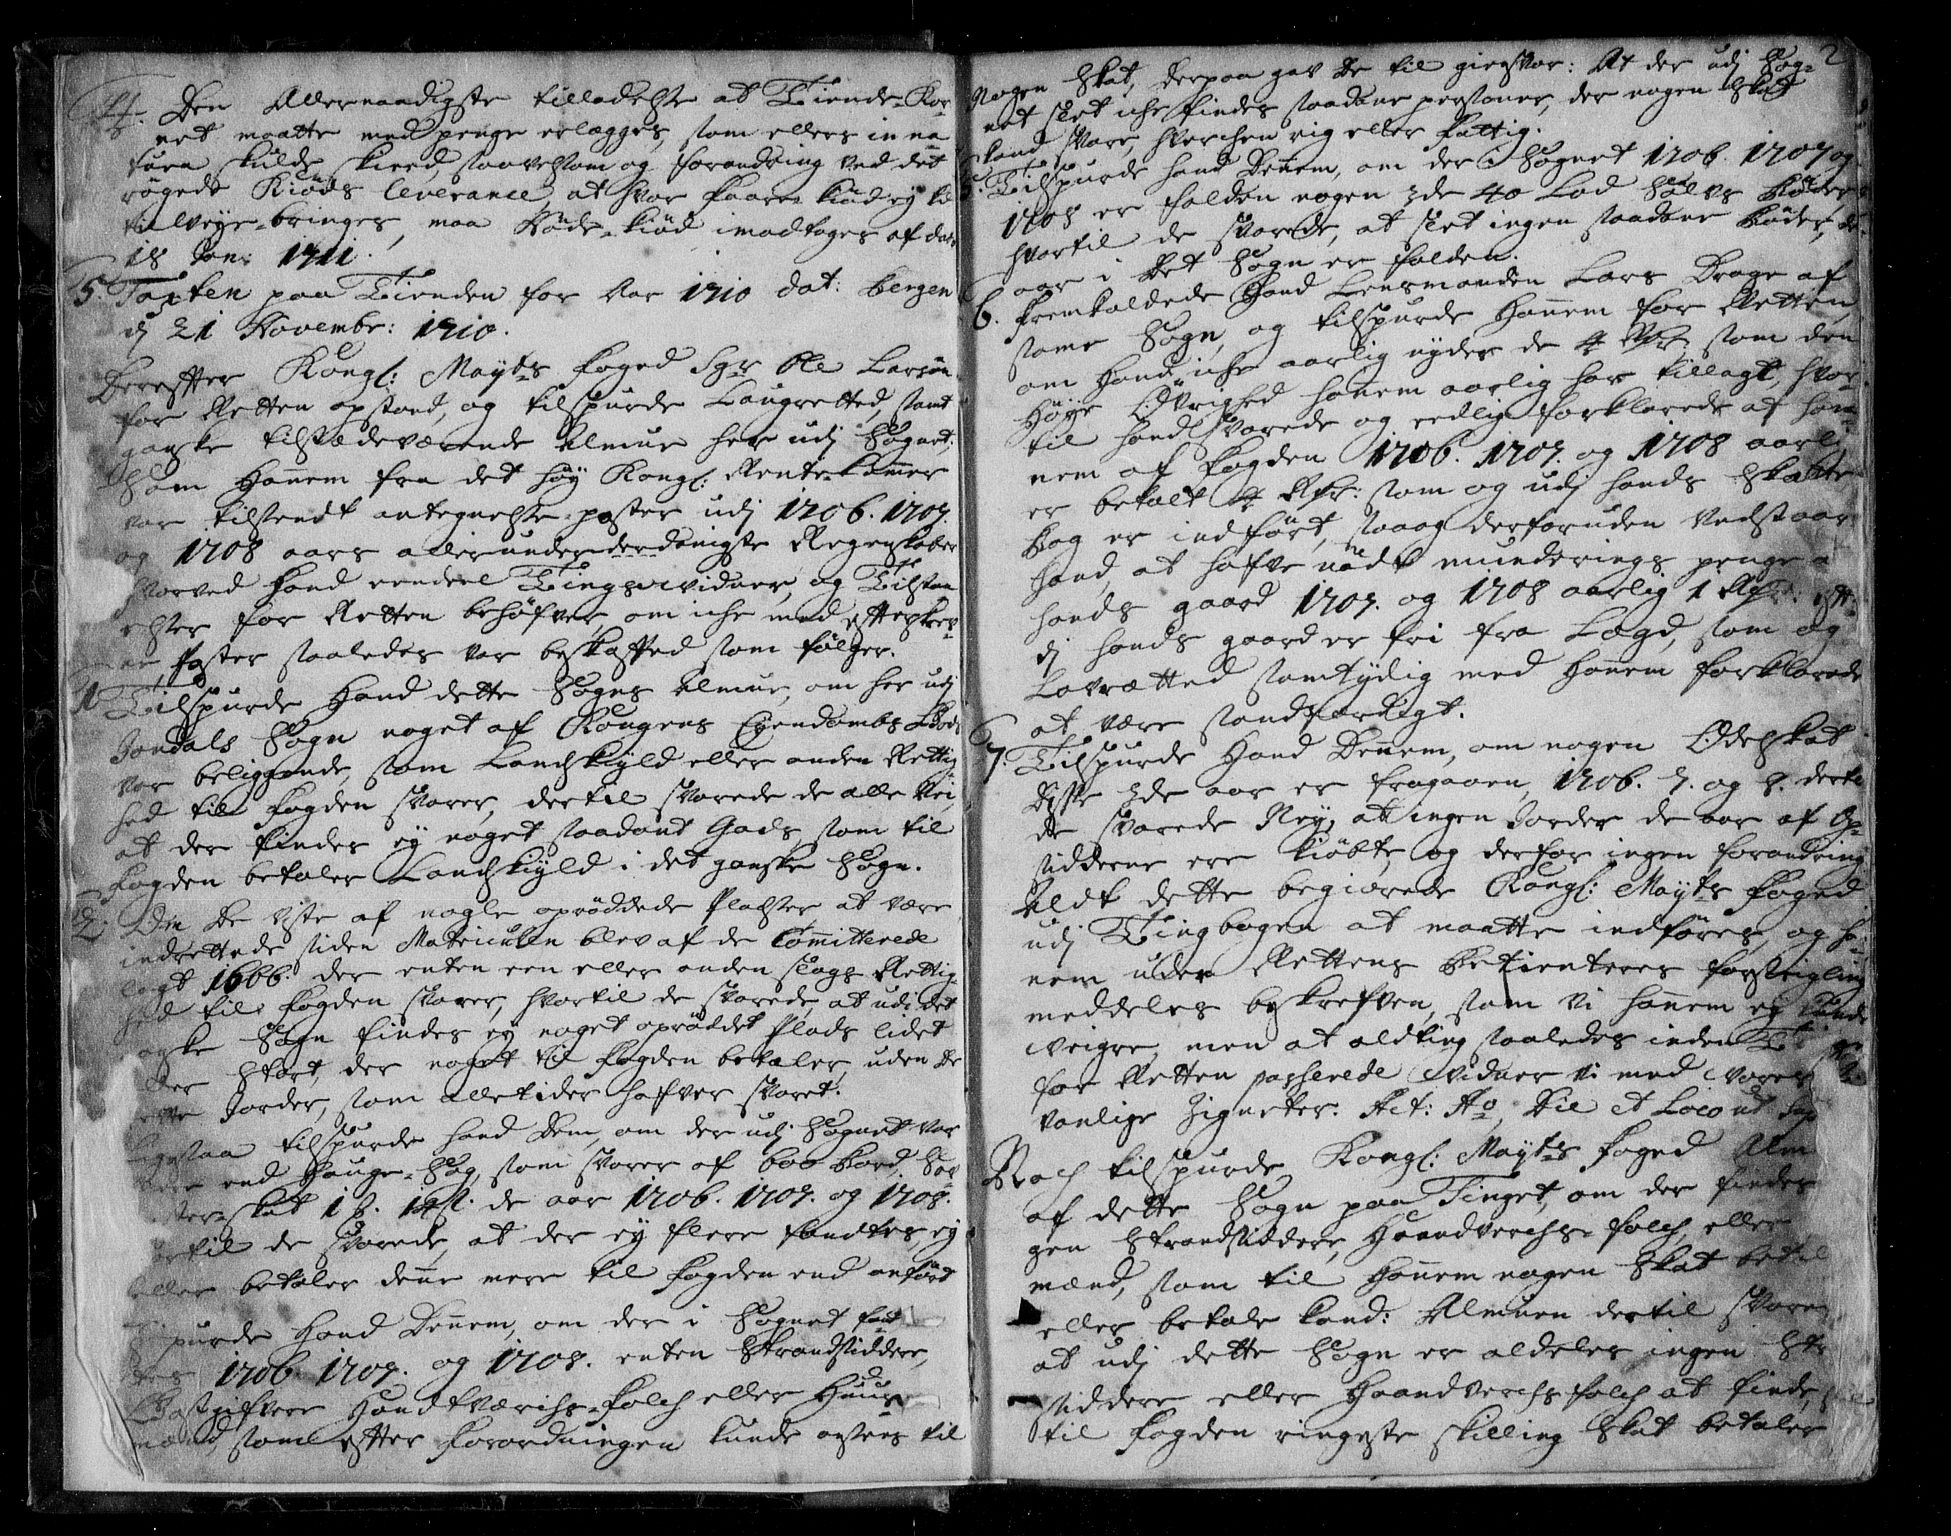 4. Den Allernaadigste tilladelse at Tiende-Kor-
net maatte med penge erlægges, som ellers in na-
tura skulde skeed, saavelsom og forandring ved det
røgede Kiøds leverance, at hvor faare kiød ey
tilveye-bringes, maa Køde-kiød imodtages af dato
18 Jan: 1711.
5. Taxten paa Tienden for Aar 1710 dat: Bergen
d 21 Novembr: 1710.
Derefter Kongl: Mayts foged Sgr Ole Larsøn
for Retten opstoed, og tilspurde Laugretted samt
ganske tilstædeværende Almue her udj Sognet,
Som hannem fra det høy Kongl: Rente-Cammer
var tilsendt antegnelse poster udj 1706. 1707.
og 1708 aars allerunderdanigste Regenskaber
hvorved hand eendeel Tingsvidner, og Tilstaa-
elser for Retten behøfver, om iche med efterskrev-
ne Poster saaledes var beskaffed som følger.
1. Tilspurde hand dette Sogns Almue, om her udj
Jondals Sogn noget af Kongens Eyendombs Gods
var beliggende, som Landskyld eller anden Rettig
hed til fogden svarer, dertil svarede de alle Nei,
at der findes ey noget saadant Gods, som til
fogden betaler Landskyld i det ganske Sogn.
2. Om De viste af nogle oprøddede Pladser at være
indrettede siden Matriculen blev af de Committerede
lagt 1666. der enten een eller anden slags Rettig-
hed til fogden svarer, hvortil de svarede, at udj det
ganske Sogn findes ey noget oprøddet Plads lidet
eller Stort, der noget til fogden betaler, uden De
Jorder, som alletider hafver svaret.
Ligesaa tilspurde hand dem, om der udj Sognet var
meere end Bonge-Sag, som svarer af 600 bord Sa-
skat de aar 1706. 1707. og 1708.
hvortil de svarede, at der ey flere fandtes, ey
eller betaler denne mere til fogden end anført
Tilspurde Hand Dennem, om der i Sognet fand-
des 1706. 1707. og 1708. enten Strandsiddere,
Gastgifvere Handtværchs-folch eller Huus-
mænd som efter forordningen kunde ansees til
2
Nogen Skat, derpaa gav De til giensvar: At der udj Sog-
net slet iche findes saadane personer, der nogen Skat
kand svare, hverchen rig eller fattig.
5. Tilspurde hand Dennem, om der i Sognet 1706. 1707 og
1708 er falden nogen 3de 40 Lod Sølvs Bøder
hvortil de svarede, at slet ingen saadane Bøder, de
aar i det Sogn er falden.
6. Fremkaldede Hand Lensmanden Lars Drage af
samme Sogn, og tilspurde Hannem for Retten,
om Hand iche aarlig nyder de 4 Rdr: som den
Høye Øvrighed hannem aarlig har tillagt, hvor-
til hand svarede og eedlig forklarede at han-
nem af fogden 1706. 1707. og 1708 aarlig
er betalt 4 Rdr: som og udj hands Skatte-
bog er indført, saa og derforuden vedstaar
hand, at hafve nødt munderings penge a
hands gaard 1707. og 1708 aarlig 1 Rdr: eft-
di hands gaard er fri fra Lægd, som og
Lavrætted samtydig med Hannem forklarede
at være sandfærdigt.
7. Tilspurde Hand Dennem, om nogen Odelskat
disse 3de aar er fragaaen, 1706. 7. og 8. dertil
de svarede Ney, at ingen Jorder de aar af Op-
sidderne ere kiøbte, og derfor ingen forandring
Aldt dette begierede Kongl: Mayts foged
udj Tingbogen at maatte indføres, og ha-
nem under Rettens Betienteres forseigling
meddeles beskrefven, som vi hannem ey kunde
weigre, men at aldting saaledes inden Ti
for Retten passerede vidner vi med vores
vanlige Zigneter. Act: Ao, Die et Loco ut sup
Noch tilspurde Kongl: Mayts foged Alm
af dette Sogn paa Tinget, om der findes
gen Strandsiddere, Haandverchs-folch, eller
mænd, som til hannem nogen Skat betal
eller betale kand: Almuen dertil svare
at udj dette Sogn er aldeles ingen Str
siddere eller Haandverchs folch at finde,
til fogden ringeste skilling Skat betaler